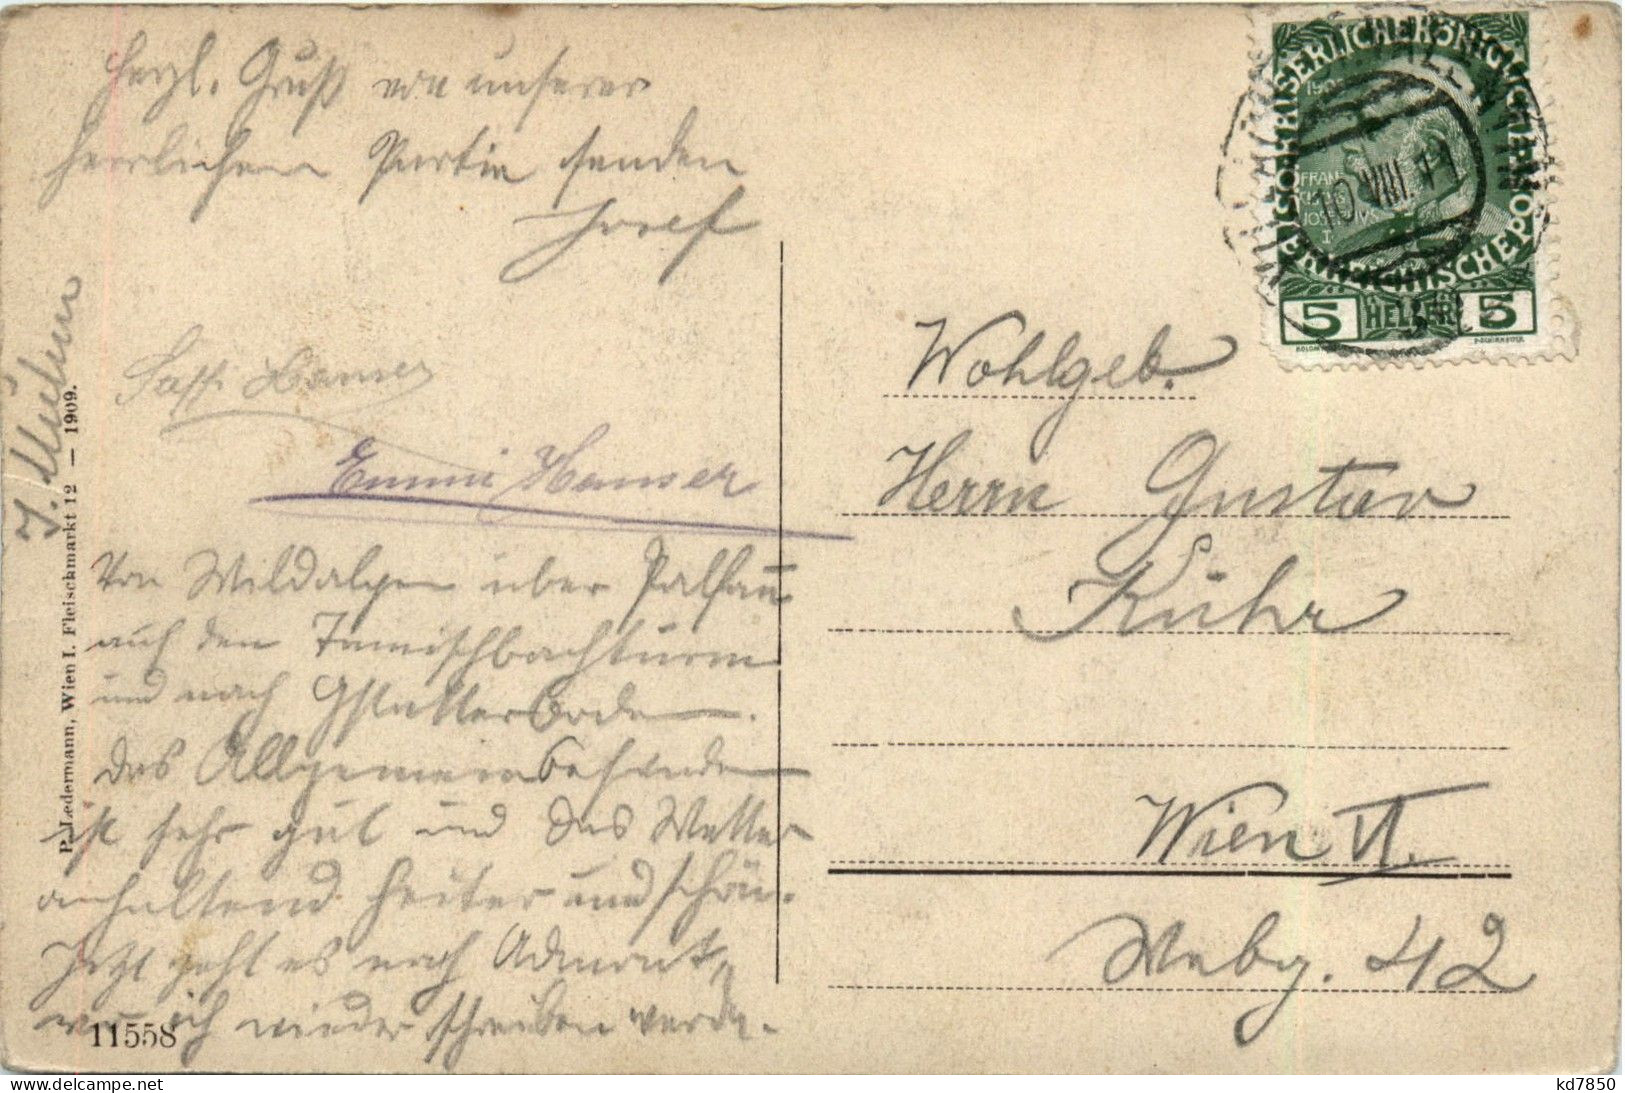 Herzl. Gruß von unserer
herrlichen Partie senden
Josef
Hanser
Emmi Hanser
Von Wildalpen über Palfau
auf den Tamischbachturm
und nach Gstatterboden.
Das Allgemeinbefinden
ist sehr gut und das Wetter
anhaltend heiter und schön.
Jetzt geht es nach Admont,
wo ich wieder schreiben werde.
11558
P. Ledermann, Wien I. Fleischmarkt 12 — 1909.
KAISERLICHE KÖNIGLICHE
ÖSTERREICHISCHE POST
FRANCISCVS
IOSEPHVS
I
10.VIII.11
5 HELLER 5
Wohlgeb.
Herrn Gustav
Kühr
Wien VI.
Webg. 42
kd7850